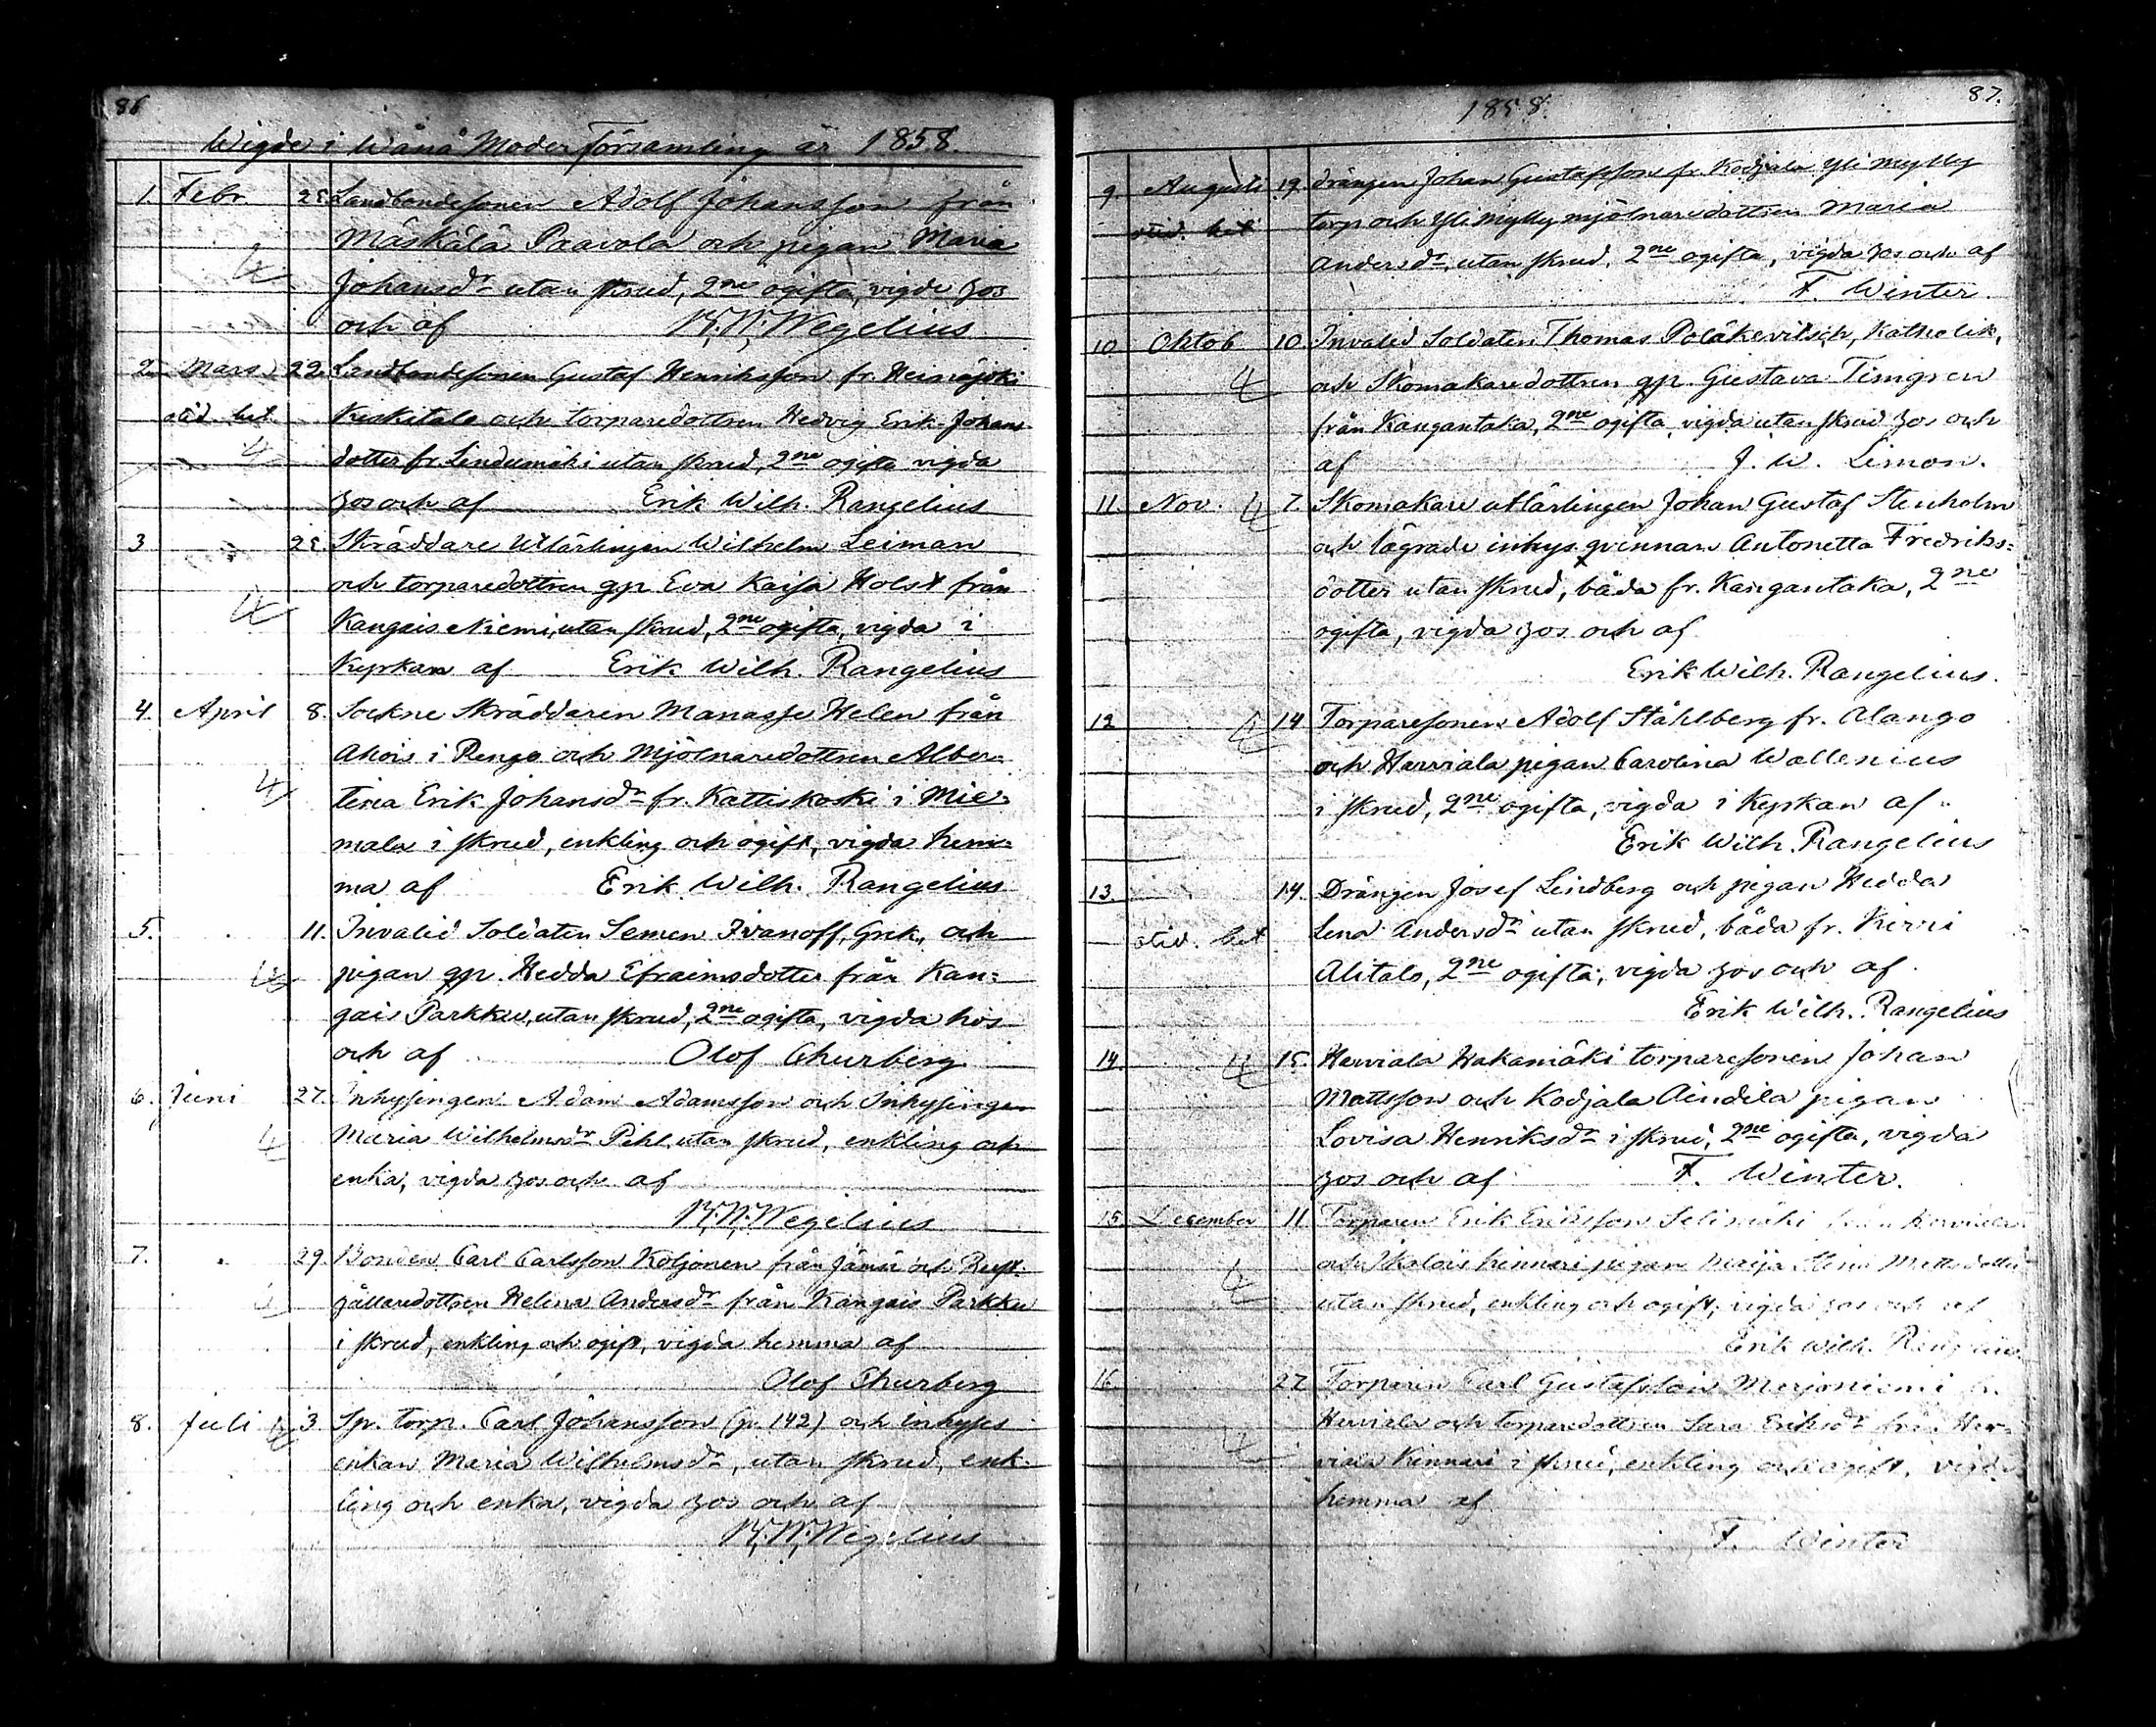 86
Wigde i Wånå Moder Församling år 1858.
1. Febr. 25. Landbondesonen Adolf Johansson från
Mäskälä Paavola och pigan Maria
Johansdr utan skrud, 2ne ogifta, vigde hos
och af K. W. Wegelius
2. Mars 22. Landbondesonen Gustaf Henriksson fr. Heinäjoki
Keskitalo och torparedottren Hedvig Erik Johans
dotter fr. Lindumäki utan skrud, 2ne ogifta vigda
hos och af Erik Wilh. Rangelius
3 25. Skräddare Utlärlingen Wilhelm Leiman
och torparedottren gp Eva Kaisa Holst från
Kangais Niemi, utan skrud, 2ne ogifta, vigda i
Kyrkan af Erik Wilh. Rangelius
4. April 8. Sockne Skräddaren Manasse Helen från
Ahois i Rengo och Mjölnaredottren Alber-
tina Erik Johansdr fr. Kattiskoski i Mie-
mala i skrud, enkling och ogift, vigda hem-
ma af Erik Wilh. Rangelius
5. 11. Invalid Soldaten Semen Ivanoff, Grek, och
pigan gp. Hedda Efraimsdotter från Kan-
gais Parkku, utan skrud, 2ne ogifta, vigda hos
och af Olof Churberg
6. Juni 27. Inhysingen Adam Adamsson och Inhysingen
Maria Wilhelmsdr Pihl utan skrud, enkling och
enka, vigda hos och af
K. W. Wegelius
7. 29. Bonden Carl Carlsson Koljonen från Jämsä och Rust-
hållaredottren Helena Andersdr från Kangais Parkku
i skrud, enkling och ogift, vigda hemma af
Olof Churberg
8. Juli 3. Spr. torp. Carl Johansson (p. 142) och inhyses
enkan Maria Wilhelmsdr, utan skrud, enk-
ling och enka, vigda hos och af
K. W. Wegelius
1858. 87.
9. Augusti 19. drängen Johan Gustafsson fr. Kodjala Yli Mylly
torp och Yli Mylly mjölnaredottren Maria
Andersdr, utan skrud, 2ne ogifta, vigda hos och af
F. Winter.
10 Oktob 10. Invalid Soldaten Thomas Poläkevitsch, Katholik,
och Skomakaredottren gp. Gustava Timgren
från Kangantaka, 2ne ogifta, vigda utan skrud hos och
af J. W. Limon.
11. Nov. 7. Skomakare utlärlingen Johan Gustaf Stenholm
och lägrade inhys. qvinnan Antonetta Fredriks-
dotter utan skrud, båda fr. Kangantaka, 2ne
ogifta, vigda hos och af
Erik Wilh. Rangelius.
12 14 Torparesonen Adolf Ståhlberg fr. Alango
och Harviala pigan Carolina Wallenius
i skrud, 2ne ogifta, vigda i Kyrkan af
Erik Wilh. Rangelius
13. 14. Drängen Josef Lindberg och pigan Hedda
Lena Andersdr utan skrud, båda fr. Kirri
Alitalo, 2ne ogifta, vigda hos och af
Erik Wilh. Rangelius
14. 15. Harviala Hakamäki torparesonen Johan
Mattsson och Kodjala Aindila pigan
Lovisa Henriksdr i skrud, 2ne ogifta, vigda
hos och af F. Winter.
15 December 11 Torparen Erik Eriksson Selinmäki från Harviala
och Ikalois kinnari pigan Maija Stina Mattsdotter
utan skrud, enkling och ogift, vigda hos och af
Erik Wilh. Rangelius.
16 27 Torparen Carl Gustafsson Marjoniemi fr.
Harviala och torparedottren Sara Eriksdr från Har-
viala Kinnari i skrud, enkling och ogift, vigda
hemma af
F. Winter